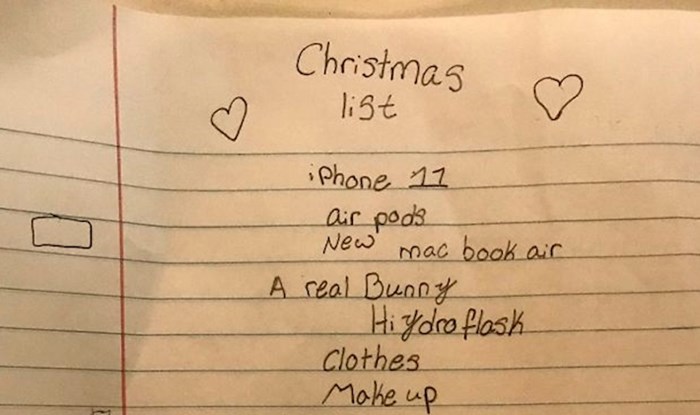 Christmas
list
iPhone 11
air pods
New mac book air
A real Bunny
Hiydroflask
Clothes
Makeup